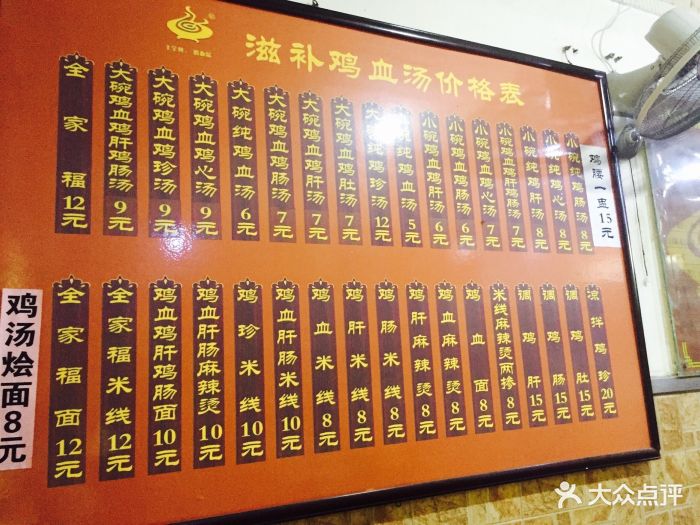 滋补鸡血汤价格表
全家福12元
大碗鸡血鸡肝鸡肠汤9元
大碗鸡血鸡珍汤9元
大碗鸡血鸡心汤9元
大碗纯鸡血汤6元
大碗鸡血鸡肠汤7元
大碗鸡血鸡肝汤7元
大碗鸡血鸡肚汤7元
大碗纯鸡珍汤12元
小碗纯鸡血汤5元
小碗鸡血鸡肝汤6元
小碗鸡血鸡肠汤6元
小碗鸡血鸡心汤7元
小碗鸡血鸡肝鸡肠汤7元
小碗纯鸡肝汤8元
小碗纯鸡心汤8元
小碗纯鸡肠汤8元
鸡腰一盅15元
鸡汤烩面8元
全家福面12元
全家福米线12元
鸡血鸡肝鸡肠面10元
鸡血肝肠麻辣烫10元
鸡珍米线10元
鸡血肝肠米线10元
鸡血米线8元
鸡肝米线8元
鸡肠米线8元
鸡肝麻辣烫8元
鸡血麻辣烫8元
鸡血面8元
米线麻辣烫两掺8元
调鸡肝15元
调鸡肠15元
调鸡肚15元
凉拌鸡珍20元
大众点评